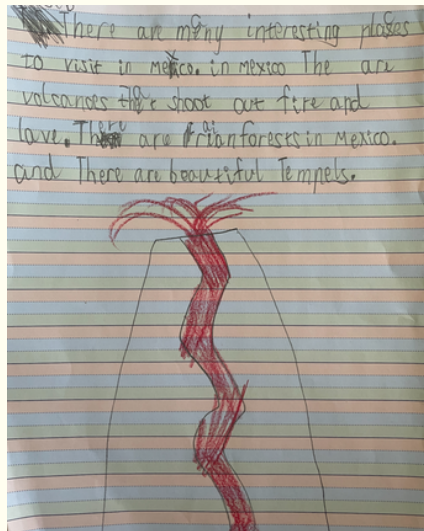 There are many interesting plases
to visit in mexico. in mexico The are
volcanoes that shoot out fire and
lave. There are rianforests in Mexico.
and There are beautiful Tempels.